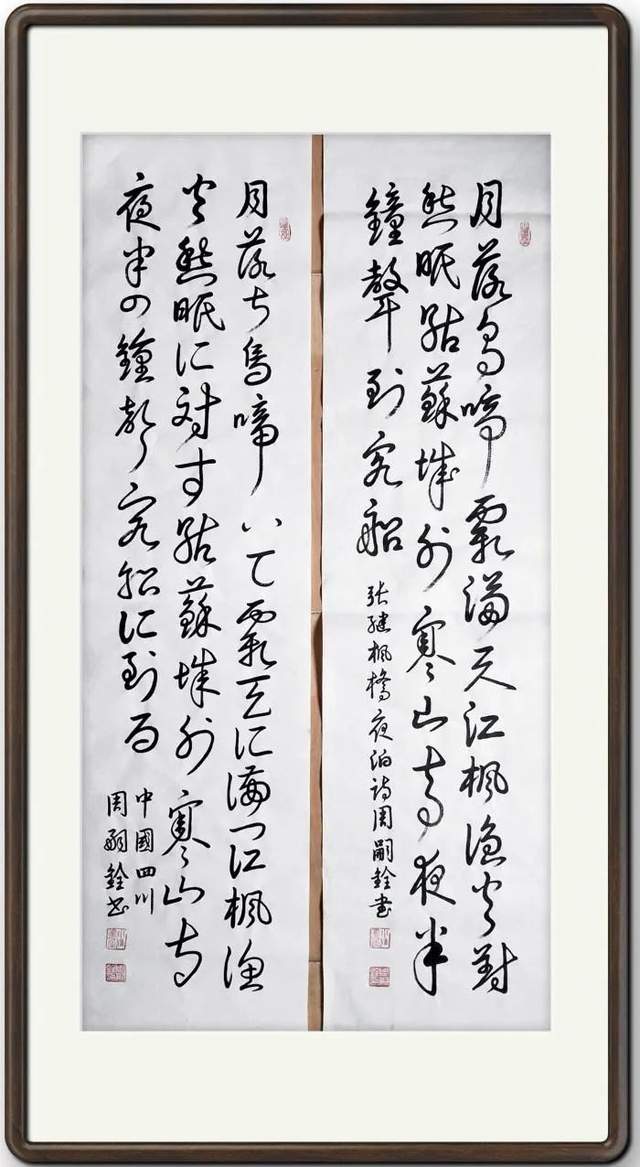 月落烏啼霜滿天江楓漁火對
愁眠姑蘇城外寒山寺夜半
鐘聲到客船
張繼楓橋夜泊詩周嗣銓書
月落ち烏啼いて霜天に満つ江楓漁
火愁眠に対す姑蘇城外寒山寺
夜半の鐘聲客船に到る
中國四川
周嗣銓书